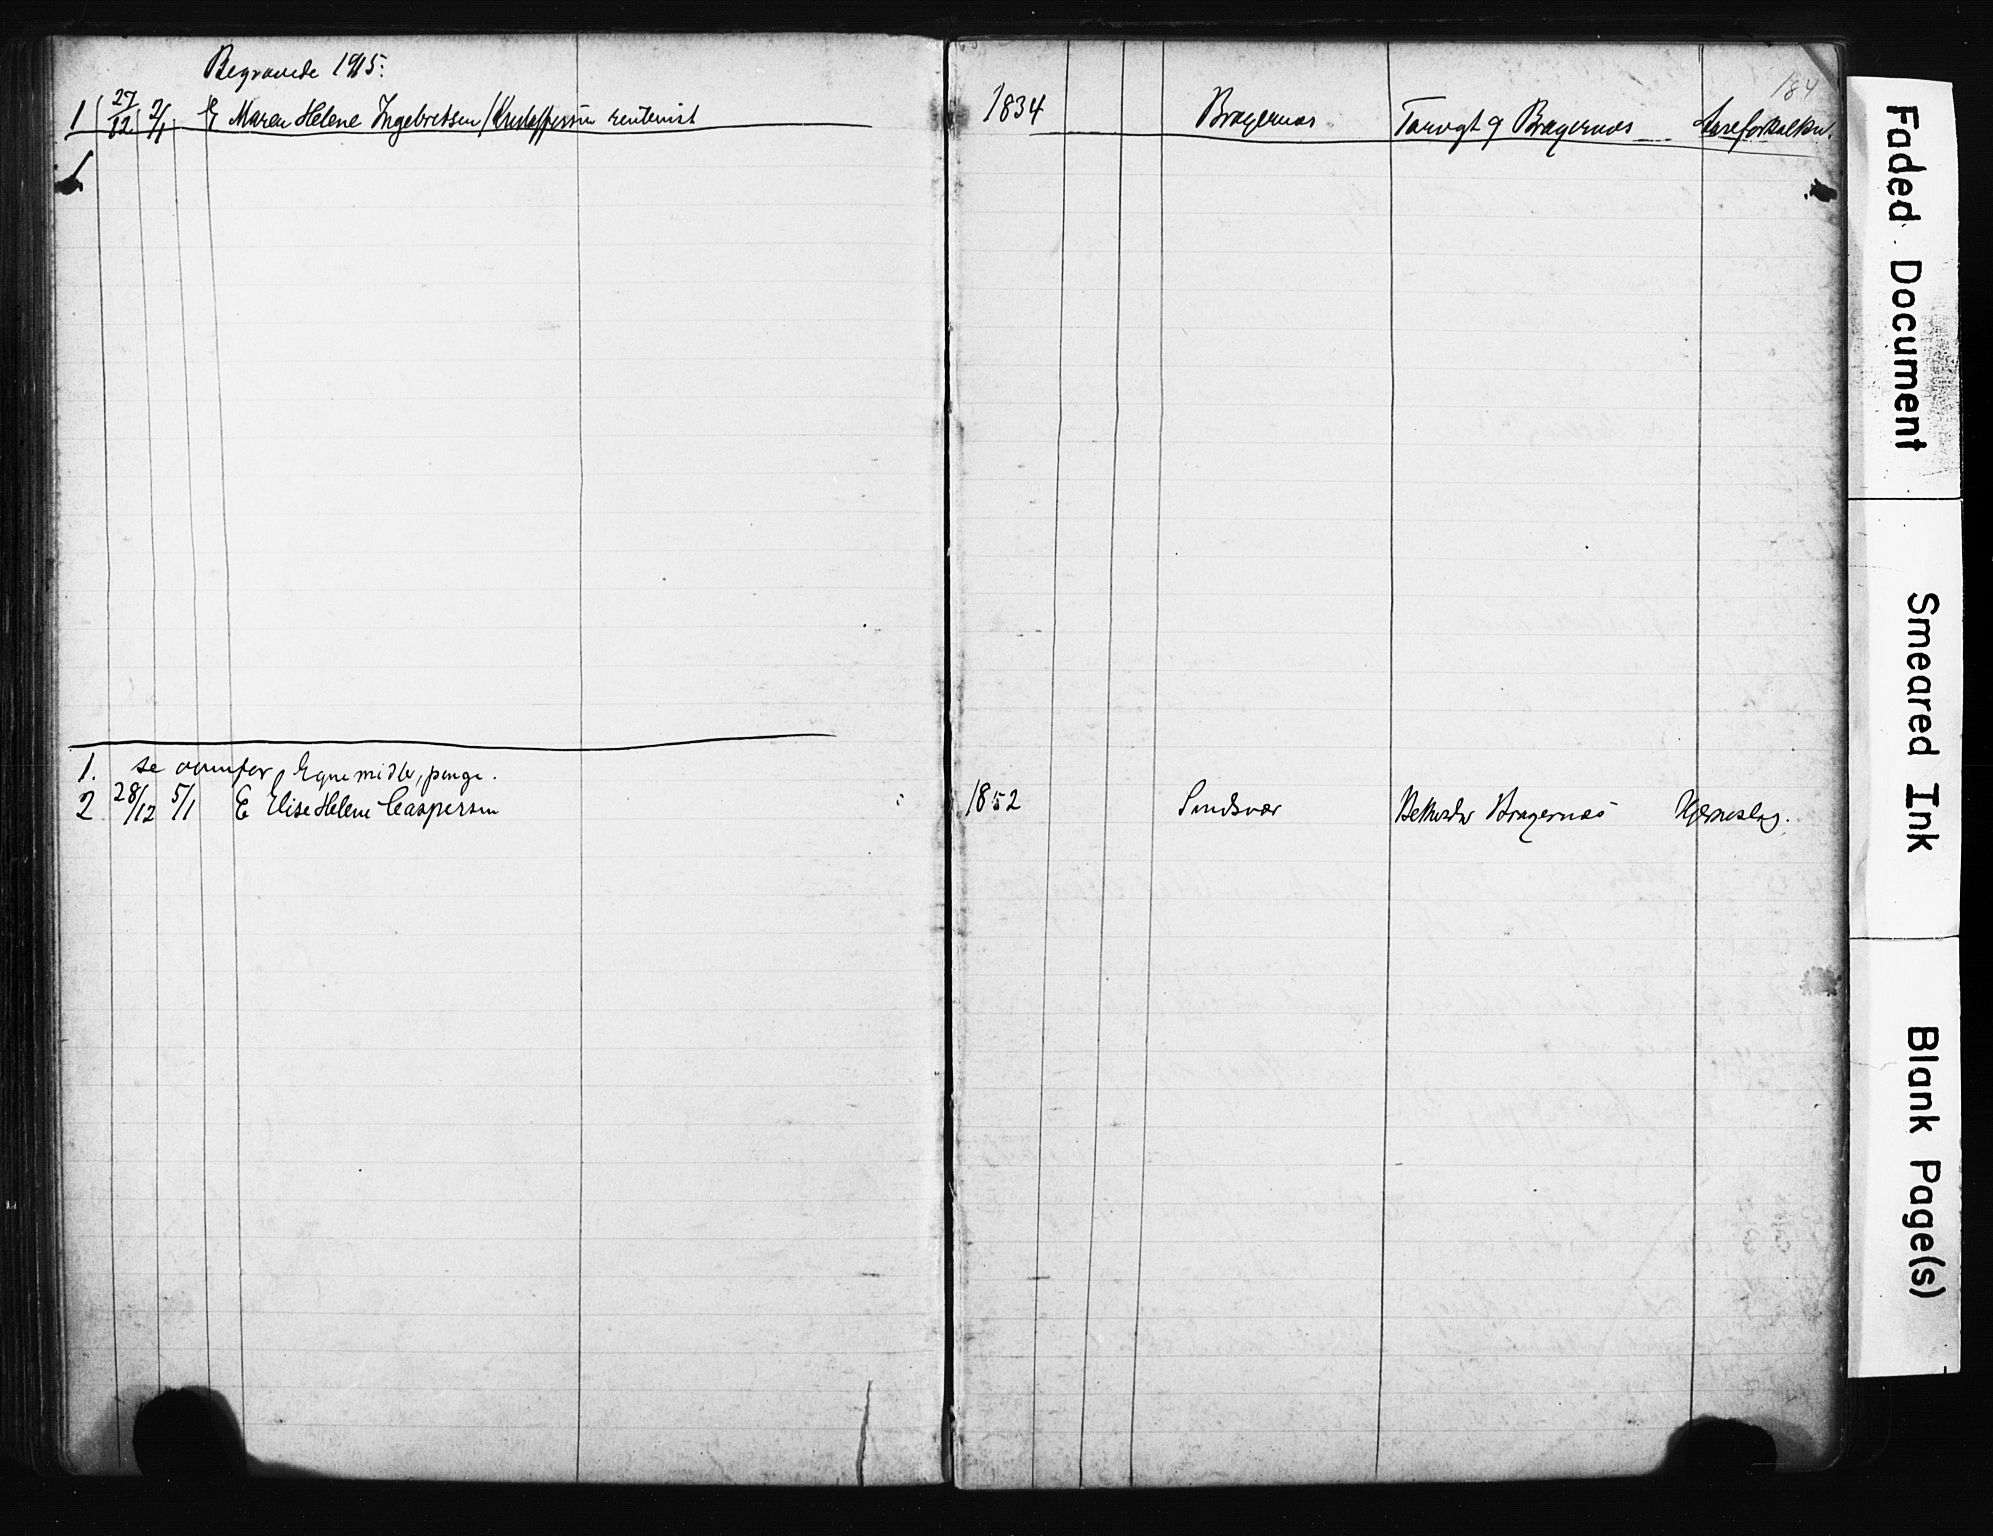 184
Begravede 1915.
1 27/12 2/1 E Maren Helene Ingebretsen / rentenist 1834 Bragernæs Torvgt 9 Bragernæs Aareforkalkn.
1
1. se ovenfor, Egne midler, penge.
2 28/12 5/1 E Elise Helene Caspersen 1852 Sandsvær Bragernæs Hjerneslag.
Faded Document
Smeared Ink
Blank Page(s)